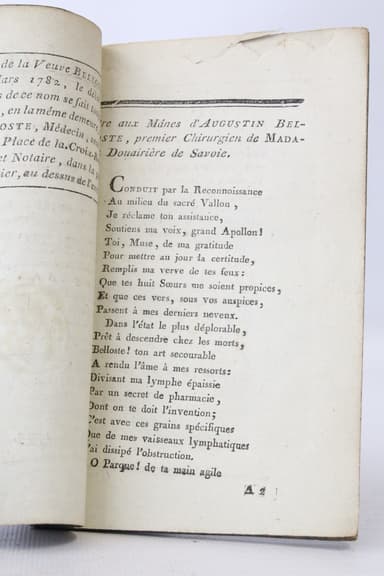 de la Veuve
Mars 1782, le
de ce nom se fait
en la même demeure,
OSTE, Médecin,
Place de la Croix-
et Notaire, dans la
ier, au dessus de l'en
aux Mânes d'AUGUSTIN BEL-
OSTE, premier Chirurgien de MADA-
Douairière de Savoie.
CONDUIT par la Reconnoissance
Au milieu du sacré Vallon,
Je réclame ton assistance,
Soutiens ma voix, grand Apollon!
Toi, Muse, de ma gratitude
Pour mettre au jour la certitude,
Remplis ma verve de tes feux:
Que tes huit Sœurs me soient propices,
Et que ces vers, sous vos auspices,
Passent à mes derniers neveux.
Dans l'état le plus déplorable,
Prêt à descendre chez les morts,
Belloste! ton art secourable
A rendu l'âme à mes ressorts:
Divisant ma lymphe épaissie
Par un secret de pharmacie,
Dont on te doit l'invention;
C'est avec ces grains spécifiques
Que de mes vaisseaux lymphatiques
J'ai dissipé l'obstruction.
O Parque! de ta main agile
A 2